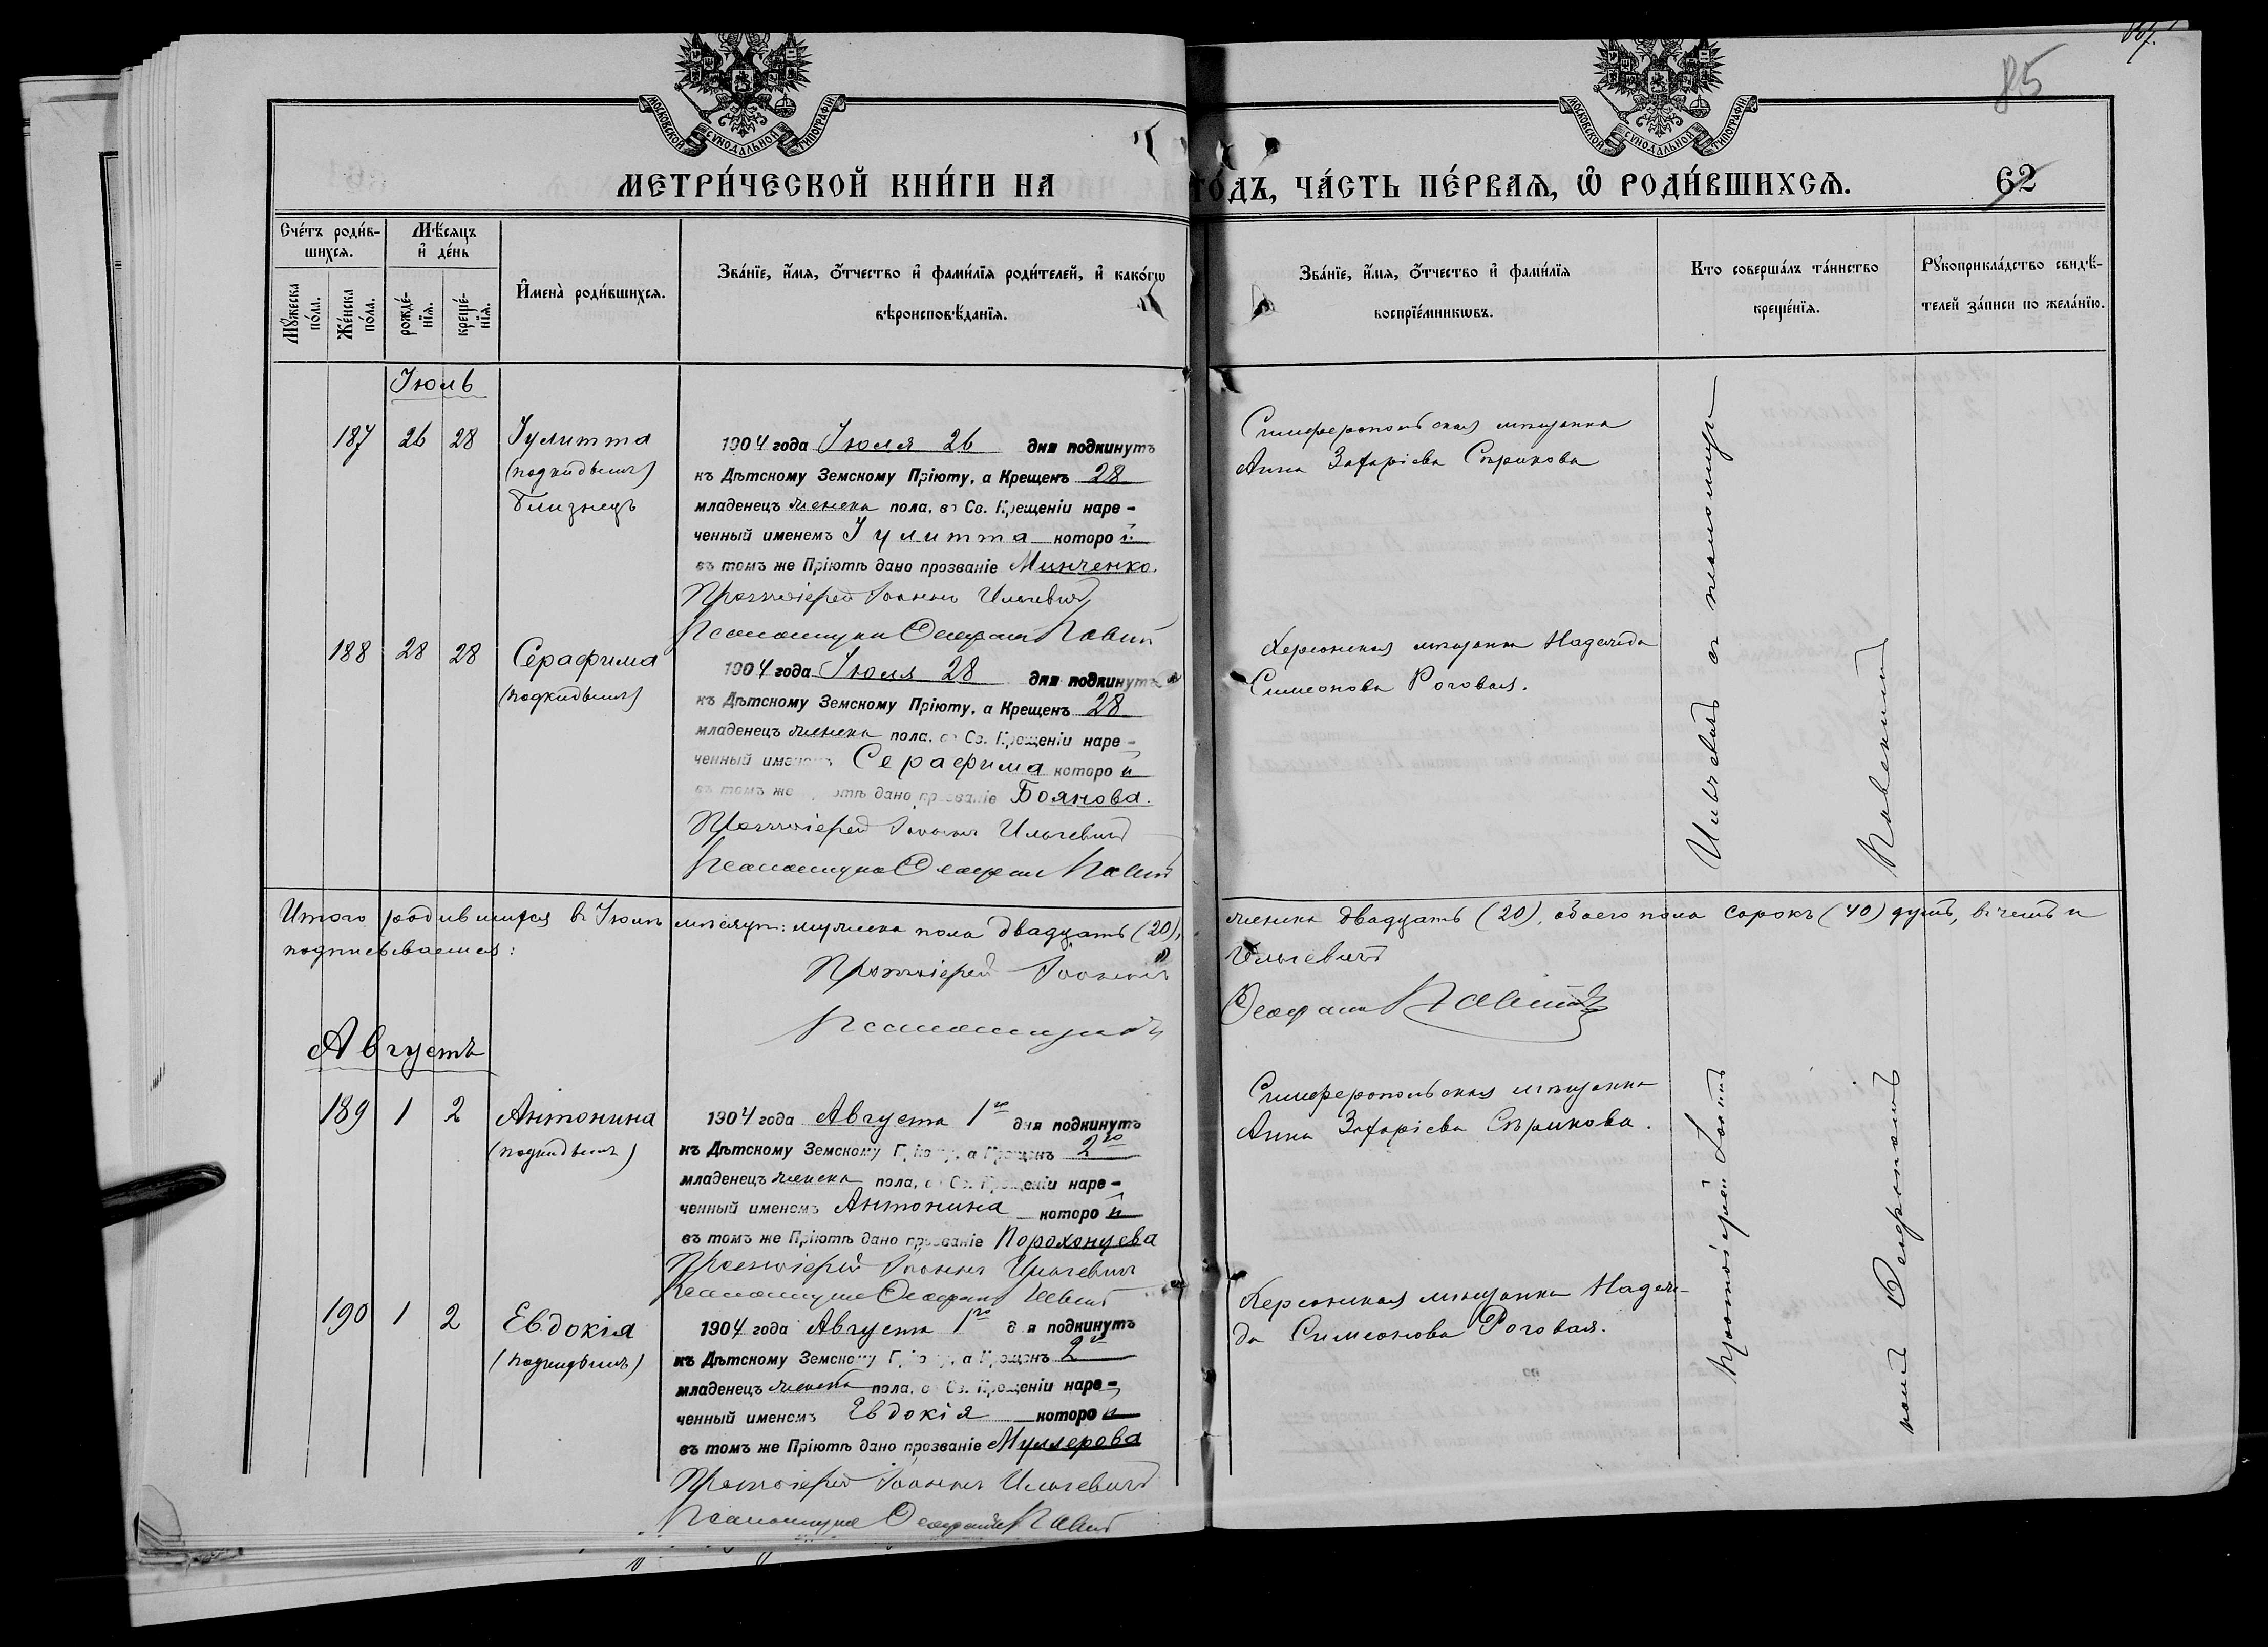 85
МОСКОВСКОЙ СѴНОДАЛЬНОЙ ТИПОГРАФІИ
МОСКОВСКОЙ СѴНОДАЛЬНОЙ ТИПОГРАФІИ
МЕТРИ́ЧЕСКОЙ КНИ́ГИ НА ГО́ДЪ, ЧА́СТЬ ПЕ́РВАЯ, Ѿ РОДИ́ВШИХСЯ.
62
Сче́тъ роди́в-
шихся.
Мѣ́сяцъ
и҆ де́нь
Мꙋ́жеска
по́ла.
Же́нска
по́ла.
рожде́-
нїя.
креще́-
нїя.
И҆мена̀ роди́вшихся.
Зва́нїе, и҆́мя, ѻ҆́тчество и҆ фами́лїя роди́телей, и҆ како́гѡ
вѣроисповѣ́данїя.
Зва́нїе, и҆́мя, ѻ҆́тчество и҆ фами́лїя
воспрїе́мникѡвъ.
Кто соверша́лъ та́инство
креще́нїя.
Рꙋкоприкла́дство свидѣ́-
телей за́писи по жела́нїю.
Іюль
187 26 28 Іулитта
(подкидышъ)
Близнецъ
1904 года Іюля 26 дня подкинутъ
къ Дѣтскому Земскому Пріюту, а Крещенъ 28
младенецъ женска пола, въ Св. Крещеніи наре-
ченный именемъ Іулитта которой
въ томъ же Пріютѣ дано прозваніе Минченко.
Протоіерей Іоаннъ Ильчевичъ
Псаломщикъ Ѳеофанъ
Симферопольская мѣщанка
Анна Захаріева Сѣрикова
188 28 28 Серафима
(подкидышъ)
1904 года Іюля 28 дня подкинутъ
къ Дѣтскому Земскому Пріюту, а Крещенъ 28
младенецъ женска пола, въ Св. Крещеніи наре-
ченный именемъ Серафима которой
въ томъ же Пріютѣ дано прозваніе Боянова.
Протоіерей Іоаннъ Ильчевичъ
Псаломщикъ Ѳеофанъ
Херсонская мѣщанка Надежда
Симеонова Роговая.
Ильчевичъ съ псаломщи
Итого родившихся въ Іюлѣ мѣсяцѣ: мужеска пола двадцать (20), женска двадцать (20), обоего пола сорокъ (40) душъ, въ чемъ и
подписываемся:
Протоіерей Іоаннъ Ильчевичъ
Псаломщикъ Ѳеофанъ
Августъ
189 1 2 Антонина
(подкидышъ)
1904 года Августа 1го дня подкинутъ
къ Дѣтскому Земскому Пріюту, а Крещенъ 2го
младенецъ женска пола, въ Св. Крещеніи наре-
ченный именемъ Антонина которой
въ томъ же Пріютѣ дано прозваніе Порохонцева
Протоіерей Іоаннъ Ильчевичъ
Псаломщикъ Ѳеофанъ
Симферопольская мѣщанка
Анна Захаріева Сѣрикова.
190 1 2 Евдокія
(подкидышъ)
1904 года Августа 1го дня подкинутъ
къ Дѣтскому Земскому Пріюту, а Крещенъ 2го
младенецъ женска пола, въ Св. Крещеніи наре-
ченный именемъ Евдокія которой
въ томъ же Пріютѣ дано прозваніе Муллерова
Протоіерей Іоаннъ Ильчевичъ
Псаломщикъ Ѳеофанъ
Херсонская мѣщанка Надеж-
да Симеонова Роговая.
Протоіерей Іоаннъ
комъ Ѳеофаномъ